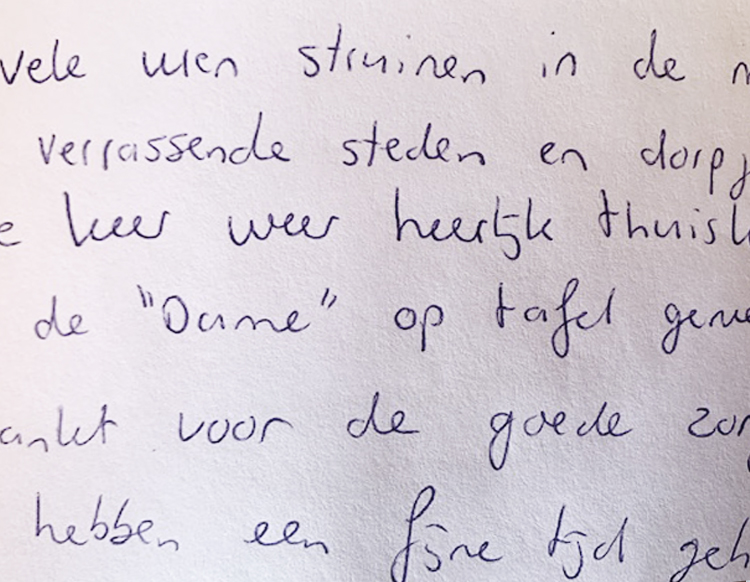 vele uren struinen in de
verrassende steden en dorpj
e keer weer heerlijk thuisk
de "Dame" op tafel gen
ankt voor de goede zor
hebben een fijne tijd geh